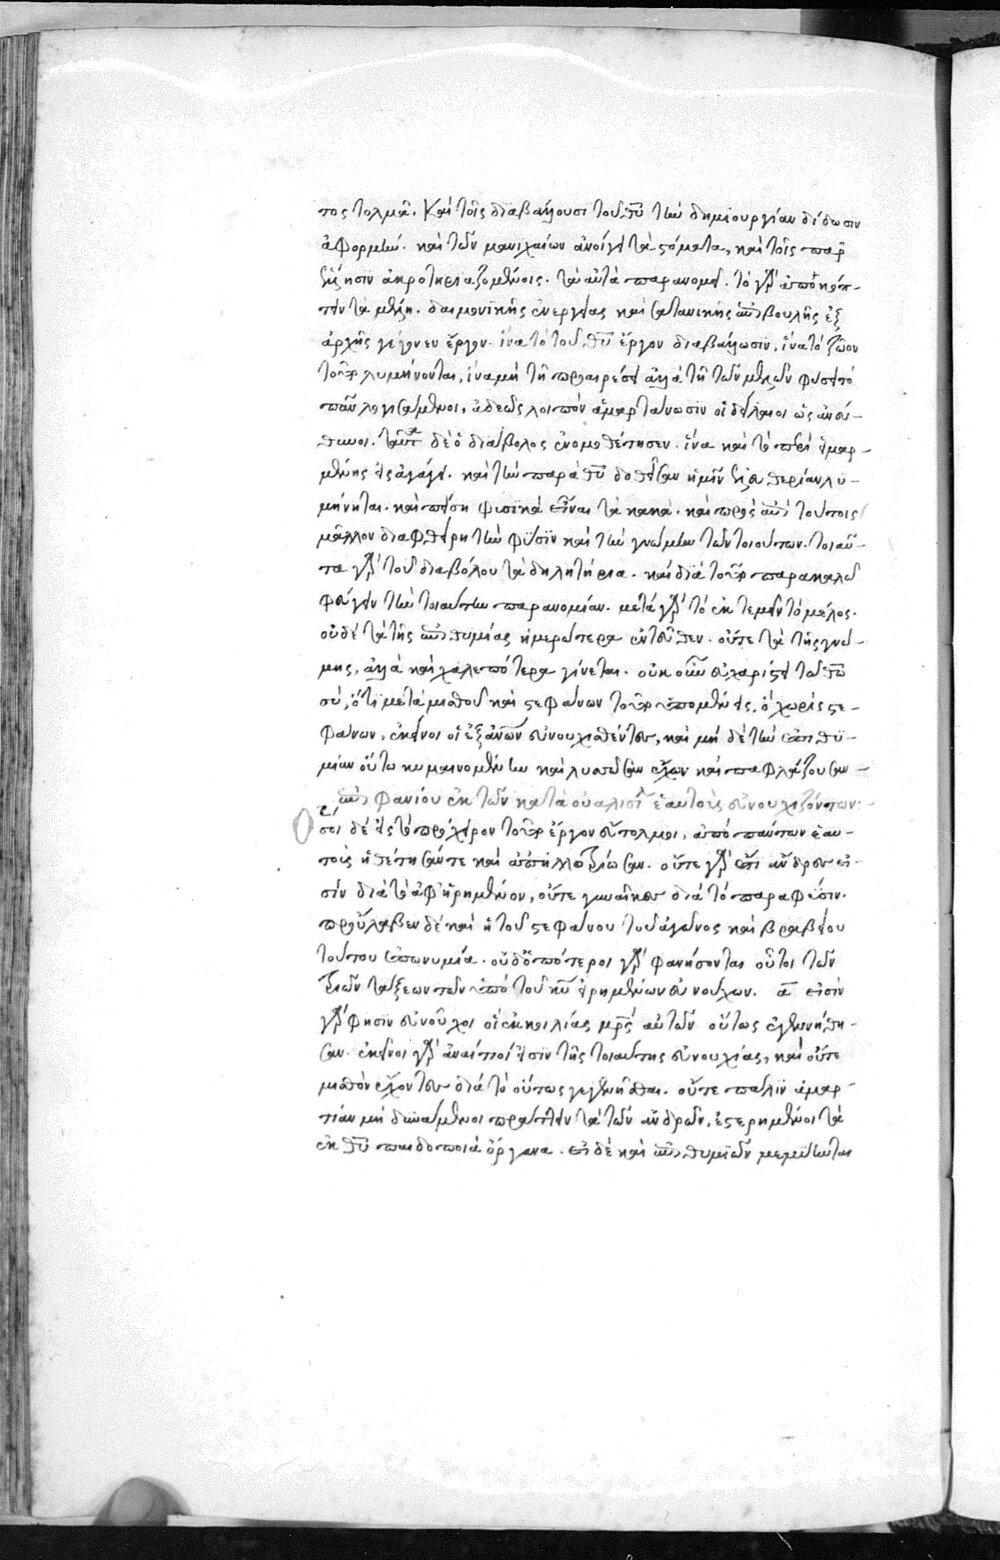 πος τολμᾶ. Καὶ τοῖς διαβάλλουσι τοῦ θῦ τὴν δημιουργίαν δίδωσιν
ἀφορμήν. καὶ τῶν μανιχαίων ἀνοίγει τὰ στόματα, καὶ τοῖς παρ
ἕλλησιν ἀκροτηριαζομένοις. τὰ αὐτὰ παρανομεῖ. τὸ γὰρ ἀποκόπ-
τειν τὰ μέλη. δαιμονικῆς ἐνεργείας καὶ σατανικῆς ἐπιβουλῆς ἐξ
ἀρχῆς γέγονεν ἔργον. ἵνα τὸ τοῦ θῦ ἔργον διαβάλλωσιν, ἵνα τὸ ζῶον
τοῦτο λυμήνωνται, ἵνα μὴ τῇ προαιρέσει ἀλλὰ τῇ τῶν μελῶν φύσει τὸ
πᾶν λογισάμενοι, ἀδεῶς λοιπὸν ἁμαρτάνωσιν οἱ δείλαιοι ὡς ἀνεύ-
θυνοι. ταῦτα δὲ ὁ διάβολος ἐνομοθέτησεν. ἵνα καὶ τὸ περὶ εἱμαρ-
μένης εἰσαγάγῃ. καὶ τὴν παρὰ θῦ δοθεῖσαν ἡμῖν ἐλευθερίαν λυ-
μήνηται. καὶ πείσῃ φυσικὰ εἶναι τὰ κακά. καὶ πρὸς ἐπὶ τούτοις
μᾶλλον διαφθείρῃ τὴν φύσιν καὶ τὴν γνώμην τῶν τοιούτων. τοιαῦ-
τα γὰρ τοῦ διαβόλου τὰ δηλητήρια. καὶ διὰ τοῦτο παρακαλῶ
φεύγειν τὴν τοιαύτην παρανομίαν. μετὰ γὰρ τὸ ἐκτεμεῖν τὸ μέλος.
οὐδὲ τὰ τῆς ἐπιθυμίας ἡμερώτερα ἐντεῦθεν. οὔτε τὰ τῆς γνώ-
μης, ἀλλὰ καὶ χαλεπώτερα γίνεται. οὐκοῦν εὐχαρίστει τῷ θῶ
σύ, ὅτι μετὰ μισθοῦ καὶ στεφάνων τοῦτο ὑπομένεις, ὃ χωρὶς στε-
φάνων, ἐκεῖνοι οἱ ἐξ ἀνων εὐνουχισθέντες, καὶ μηδὲ τὴν ἐπιθυ-
μίαν οὕτω κυμαινομένην καὶ λυττῶσαν ἔχων καὶ παφλάζουσαν
ἐπιφανίου ἐκ τῶν κατὰ οὐαλισί ἑαυτοὺς εὐνουχιζόντων:
Ὅσοι δὲ εἰς τὸ πρόχειρον τοῦτο ἔργον εὔτολμοι, ἀπὸ πάντων ἑαυ-
τοὺς ἠθέτησάν τε καὶ ἀπηλλοτρίωσαν. οὔτε γὰρ ἔτι ἄνδρες εἰ-
σὶν διὰ τὸ ἀφῃρημένον, οὔτε γυναῖκες διὰ τὸ παρὰ φύσιν.
προΰλαβεν δὲ καὶ ἡ τοῦ στεφάνου τοῦ ἀγῶνος καὶ βραβείου
τούτου ἐπωνυμία. οὐδοπότεροι γὰρ φανήσονται οὗτοι τῶν
τριῶν τάξεων τῶν ὑπὸ τοῦ κῦ εἰρημένων εὐνούχων. ἅ εἰσὶν
γάρ φησιν εὐνοῦχοι οἳ ἐκ κοιλίας μρς αὐτῶν οὕτως ἐγεννήθη-
σαν. ἐκεῖνοι γὰρ ἀναίτιοί εἰσιν τῆς τοιαύτης εὐνουχίας, καὶ οὔτε
μισθὸν ἔχοντες διὰ τὸ οὕτως γεγεννῆσθαι. οὔτε πάλιν ἁμαρ-
τίαν μὴ δυνάμενοι πράττειν τὰ τῶν ἀνδρῶν, ἐστερημένοι τὰ
ἐκ θῦ παιδοποιὰ ὄργανα. εἰ δὲ καὶ ἐπιθυμιῶν